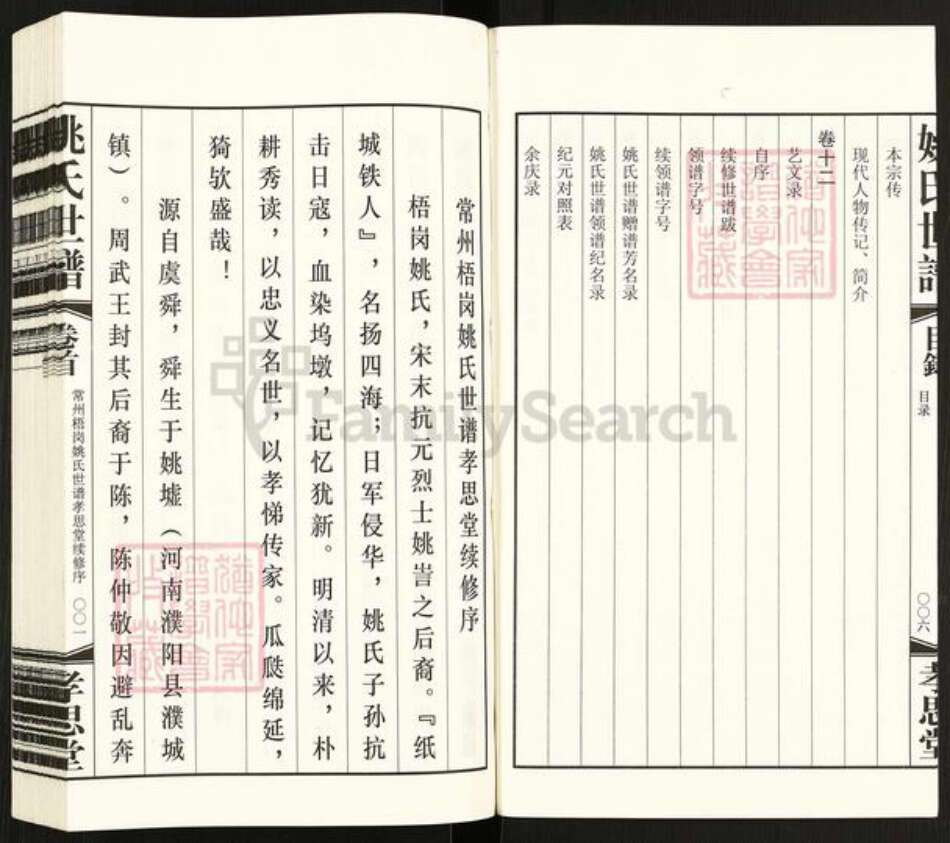 姚氏世谱
目录
目录
〇〇六
孝思堂
本宗传
现代人物传记、简介
卷十二
艺文录
自序
续修世谱跋
领谱字号
续领谱字号
姚氏世谱赠谱芳名录
姚氏世谱领谱纪名录
纪元对照表
余庆录
常州梧岗姚氏世谱孝思堂续修序
梧岗姚氏，宋末抗元烈士姚訔之后裔。『纸
城铁人』，名扬四海；日军侵华，姚氏子孙抗
击日寇，血染坞墩，记忆犹新。明清以来，朴
耕秀读，以忠义名世，以孝悌传家。瓜瓞绵延，
猗欤盛哉！
源自虞舜，舜生于姚墟（河南濮阳县濮城
镇）。周武王封其后裔于陈，陈仲敬因避乱奔
姚氏世谱
卷首
常州梧岗姚氏世谱孝思堂续修序
〇〇一
孝思堂
FamilySearch